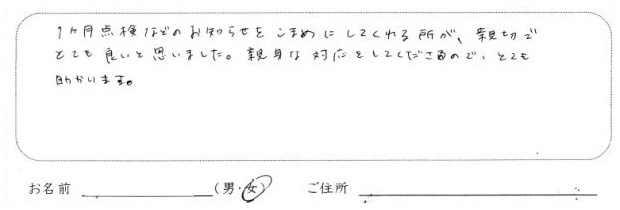 1ヶ月点検などのお知らせをこまめにしてくれる所が、親切で
とても良いと思いました。親身な対応をしてくださるので、とても
助かいます。
お名前 (男・女) ご住所